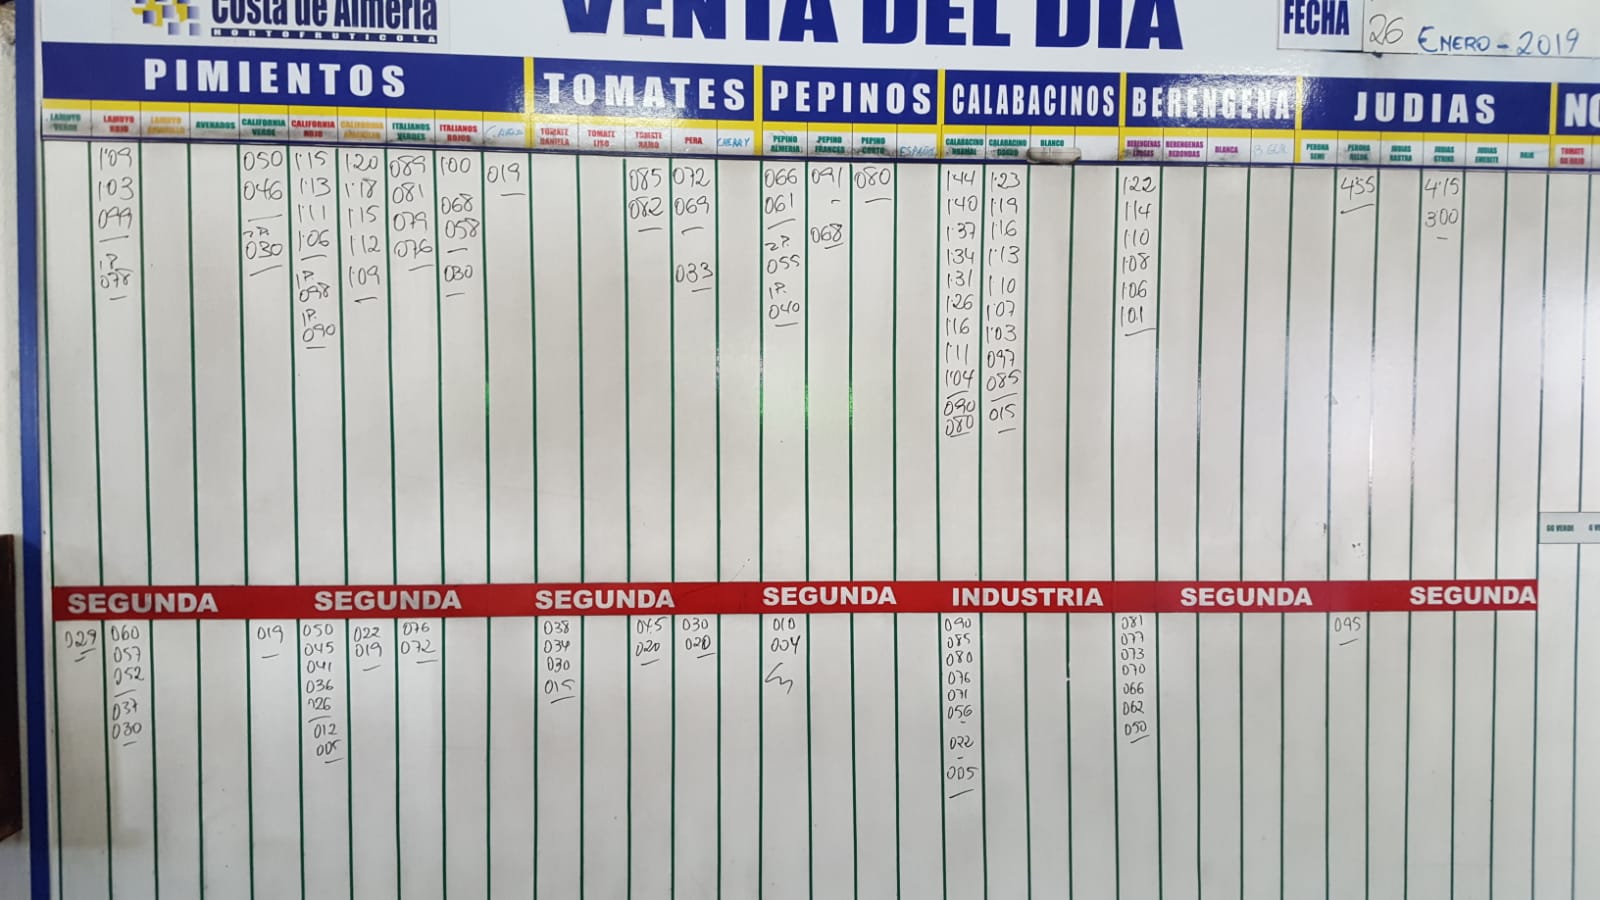 Costa de Almería
HORTOFRUTICOLA
VENTA DEL DIA
FECHA
26 ENERO - 2019
PIMIENTOS
TOMATES
PEPINOS
CALABACINOS
BERENGENA
JUDIAS
NO
LAMUYO VERDE
LAMUYO ROJO
LAMUYO AMARILLO
AVENADOS
CALIFORNIA VERDE
CALIFORNIA ROJO
CALIFORNIA AMARILLO
ITALIANOS VERDES
ITALIANOS ROJOS
TOMATE DANIELA
TOMATE LISO
TOMATE RAMO
PERA
CHERRY
PEPINO ALMERIA
PEPINO FRANCES
PEPINO CORTO
ESPAÑOL
CALABACINO NORMAL
CALABACINO GORDO
BLANCO
BERENGENAS LARGAS
BERENGENAS REDONDAS
BLANCA
PERONA SEMI
PERONA ROJA
JUDIAS RASTRA
JUDIAS STRIKE
JUDIAS EMERITE
RAJE
TOMATE GG ROJO
1'09
1'03
099
1ª
078
050
046
2ª
030
1'15
1'13
1'11
1'06
1ª
098
1ª
090
1'20
1'18
1'15
1'12
1'09
089
081
079
076
1'00
068
058
030
019
085
082
072
069
033
066
061
2ª
055
1ª
040
091
068
080
1'44
1'40
1'37
1'34
1'31
1'26
1'16
1'11
1'04
090
080
1'23
1'19
1'16
1'13
1'10
1'07
1'03
097
085
015
1'22
1'14
1'10
1'08
1'06
1'01
4'55
4'15
3'00
GG VERDE
G VE
SEGUNDA
SEGUNDA
SEGUNDA
SEGUNDA
INDUSTRIA
SEGUNDA
SEGUNDA
029
060
057
052
037
030
019
050
045
041
036
026
012
005
022
019
076
072
038
034
030
015
045
020
030
020
010
004
090
085
080
076
071
056
022
005
081
077
073
070
066
062
050
095